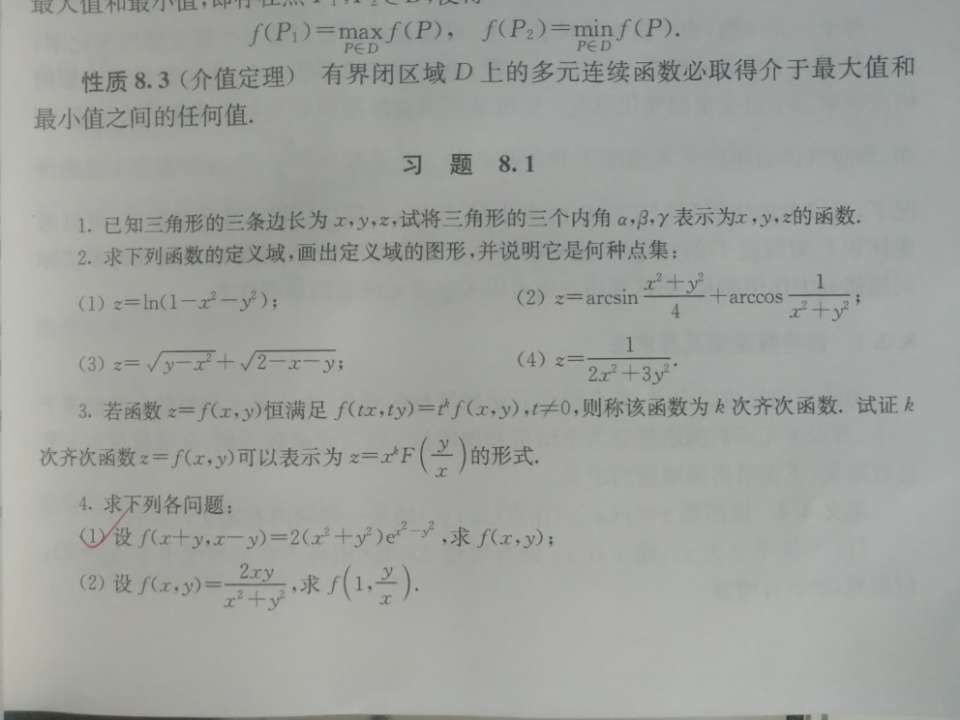 最大值和最小值,即存在点
f(P₁)=max f(P), f(P₂)=min f(P).
P∈D P∈D
性质 8.3 (介值定理) 有界闭区域 D 上的多元连续函数必取得介于最大值和
最小值之间的任何值.
习 题 8.1
1. 已知三角形的三条边长为 x,y,z,试将三角形的三个内角 α,β,γ 表示为x,y,z的函数.
2. 求下列函数的定义域,画出定义域的图形,并说明它是何种点集:
(1) z=ln(1-x²-y²); (2) z=arcsin (x²+y²)/4 + arccos 1/(x²+y²);
(3) z=√(y-x²)+√(2-x-y); (4) z=1/(2x²+3y²).
3. 若函数 z=f(x,y)恒满足 f(tx,ty)=tᵏf(x,y),t≠0,则称该函数为 k 次齐次函数. 试证 k
次齐次函数 z=f(x,y)可以表示为 z=xᵏF(y/x)的形式.
4. 求下列各问题:
(1) 设 f(x+y,x-y)=2(x²+y²)e^(x²-y²),求 f(x,y);
(2) 设 f(x,y)=2xy/(x²+y²),求 f(1,y/x).